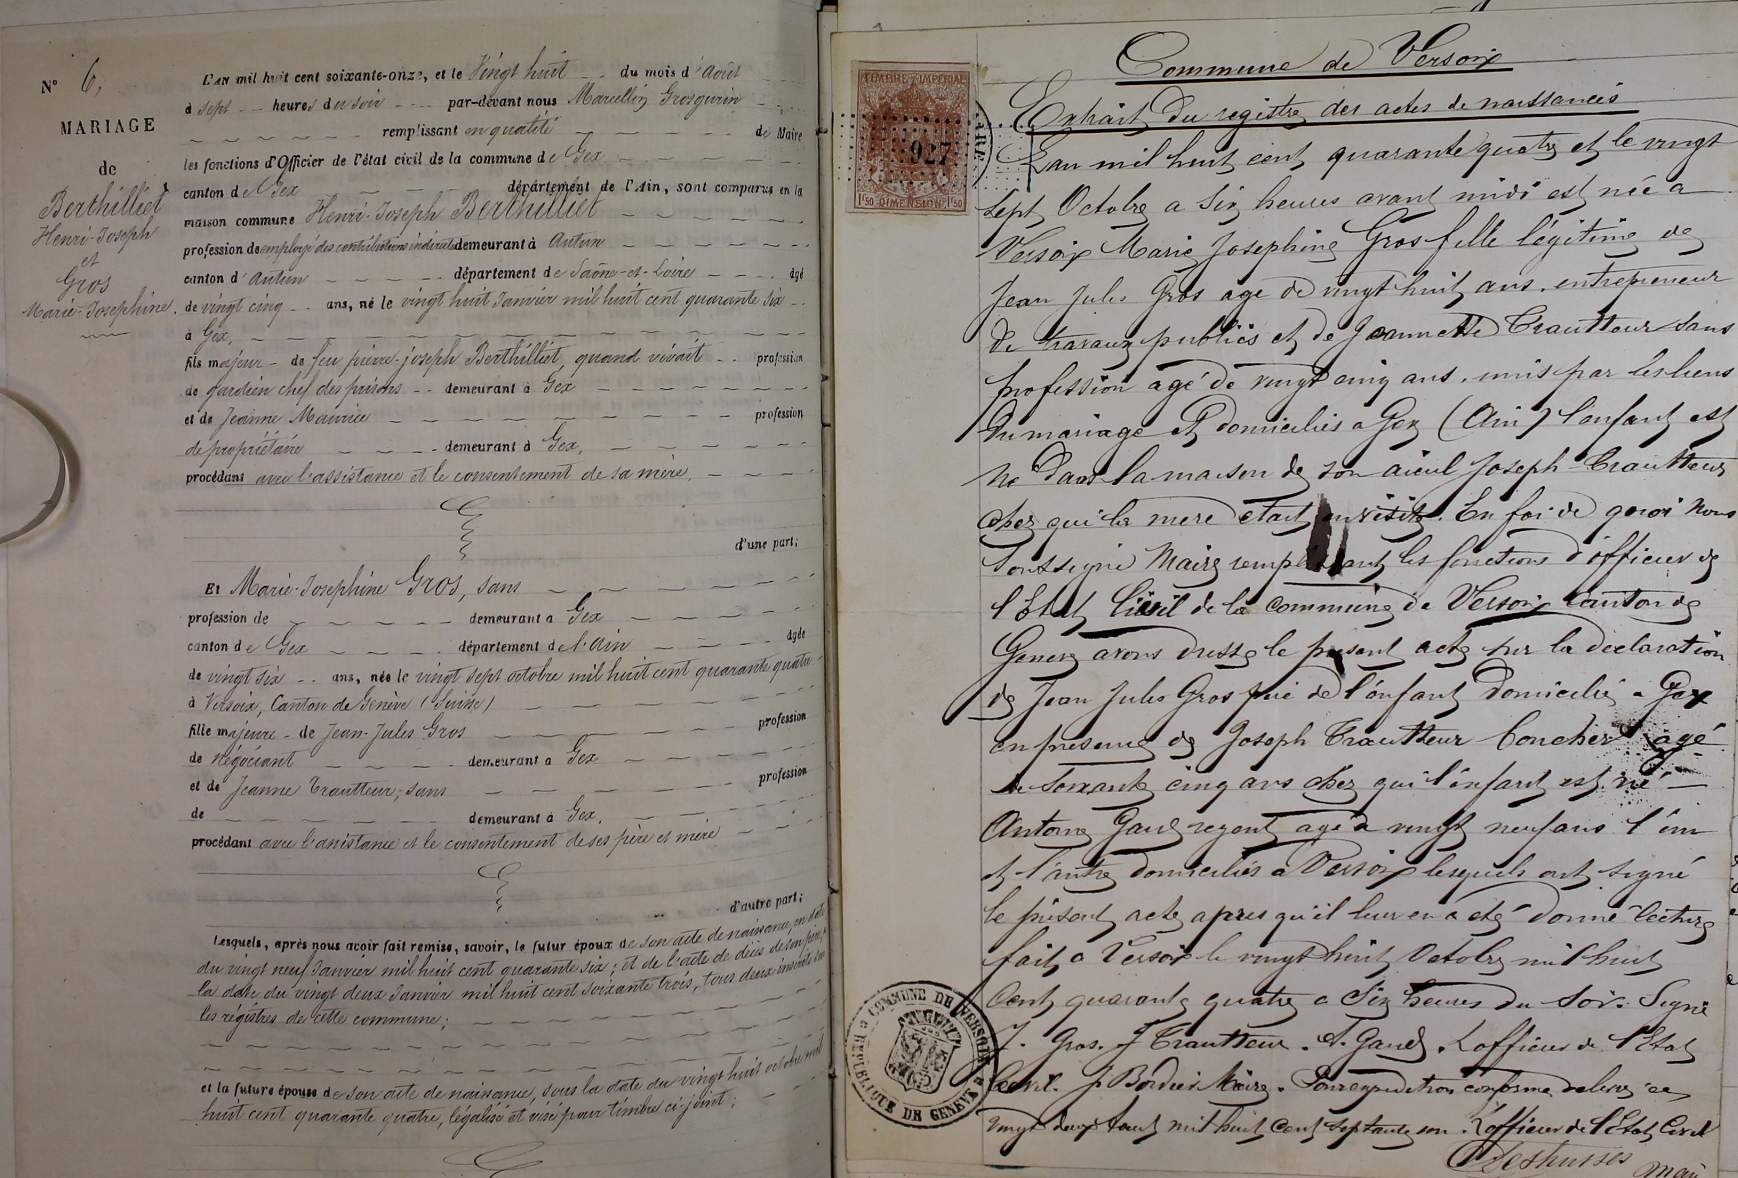 N° 6,
MARIAGE
de
Berthilliet
Henri-Joseph
et
Gros
Marie-Josephine.
L'an mil huit cent soixante-onze, et le Vingt huit du mois d'Août
à sept heures du soir par-devant nous Marcellin Grosgurin
remplissant en qualité de Maire
les fonctions d'Officier de l'état civil de la commune de Gex
canton de Gex département de l'Ain, sont comparus en la
maison commune Henri-Joseph Berthilliet
profession de employé des contributions indirectes demeurant à Autun
canton d'Autun département de Saône-et-Loire âgé
de vingt cinq ans, né le vingt huit Janvier mil huit cent quarante six
à Gex,
fils majeur de feu pierre-joseph Berthilliet, quand vivait profession
de gardien chef des prisons demeurant à Gex
et de Jeanne Maurice profession
de propriétaire demeurant à Gex,
procédant avec l'assistance et le consentement de sa mère,
d'une part;
Et Marie-Josephine Gros, sans
profession de demeurant à Gex
canton de Gex département de l'Ain âgée
de vingt six ans, née le vingt sept octobre mil huit cent quarante quatre
à Versoix, Canton de Genève (Suisse)
fille majeure de Jean-Jules Gros profession
de négociant demeurant à Gex
et de Jeanne Trautteur, sans profession
de demeurant à Gex,
procédant avec l'assistance et le consentement de ses père et mère
d'autre part;
Lesquels, après nous avoir fait remise, savoir, le futur époux de son acte de naissance, en date
du vingt neuf Janvier mil huit cent quarante six; et de l'acte de décès de son père,
la date du vingt deux Janvier mil huit cent soixante trois, tous deux inscrits
les registres de cette commune;
et la future épouse de son acte de naissance, sous la date du vingt huit octobre mil
huit cent quarante quatre, légalisé et visé pour timbre ci-joint;
Commune de Versoix
Extrait du registre des actes de naissances
TIMBRE IMPERIAL
927
1f50 DIMENSION 1f50
L'an mil huit cent quarante quatre et le vingt
sept Octobre a six heures avant midi est née a
Versoix Marie Josephine Gros fille légitime de
Jean Jules Gros age de vingt huit ans, entrepreneur
de travaux publics et de Jeannette Trautteur sans
profession agé de vingt cinq ans, unis par les liens
du mariage et domiciliés a Gex (Ain) l'enfant est
né dans la maison de son aieul Joseph Trautteur
chez qui la mere etait en visite. En foi de quoi nous
soussigné Maire remplissant les fonctions d'officier de
l'Etat Civil de la commune de Versoix canton de
Geneve avons dressé le present acte sur la declaration
de Jean Jules Gros pere de l'enfant domicilié a Gex
en presence de Joseph Trautteur Boucher agé
de soixante cinq ans chez qui l'enfant est né
Antoine Gaud regent agé de vingt neuf ans l'un
et l'autre domiciliés a Versoix lesquels ont signé
le présent acte apres qu'il leur en a eté donné lecture
fait a Versoix le vingt huit Octobre mil huit
Cent quarante quatre a Six heures du Soir. Signé
J. Gros. J Trautteur. A. Gaud. L'officier de l'Etat
Civil. J Bordier Maire. Pour expedition conforme delivré ce
vingt deux Aout mil huit cent septante un. L'officier de l'Etat Civil
Deshusses Maire
COMMUNE DE VERSOIX
REPUBLIQUE DE GENEVE